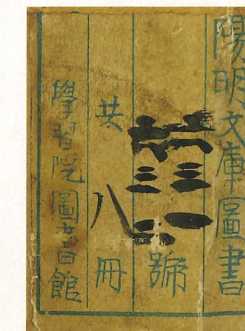 陽明文庫圖書
號
共八冊
學習院圖書館